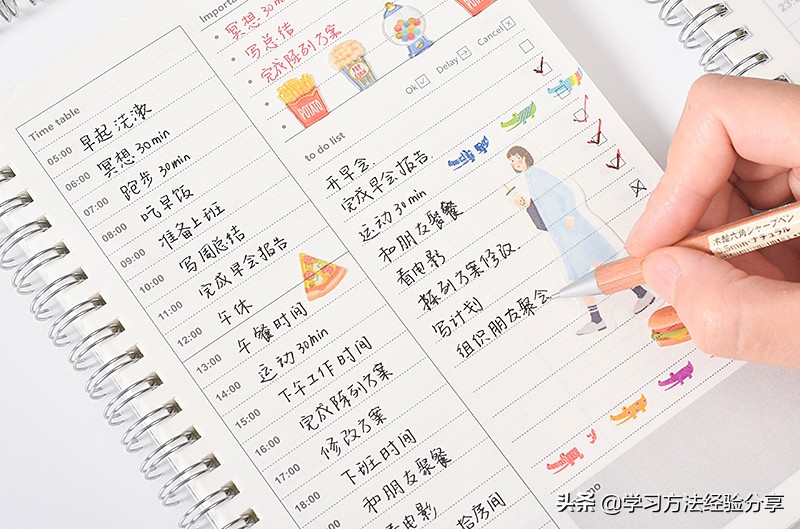 Important
冥想30min
写总结
完成陈列方案
POTATO
POTATO
Ok
Delay
Cancel
Time table
05:00 早起洗漱
06:00 冥想30min
07:00 跑步30min
08:00 吃早饭
09:00 准备上班
10:00 写周总结
11:00 完成早会报告
12:00 午休
13:00 午餐时间
14:00 运动30min
15:00 下午工作时间
16:00 完成陈列方案
17:00 修改方案
18:00 下班时间
和朋友聚餐
看电影
拾房间
to do list
开早会.
完成早会报告
运动30min
和朋友聚餐
看电影
陈列方案修改.
写计划
组织朋友聚会
木軸六角シャープペン
5mm・ナチュラル
头条 @学习方法经验分享